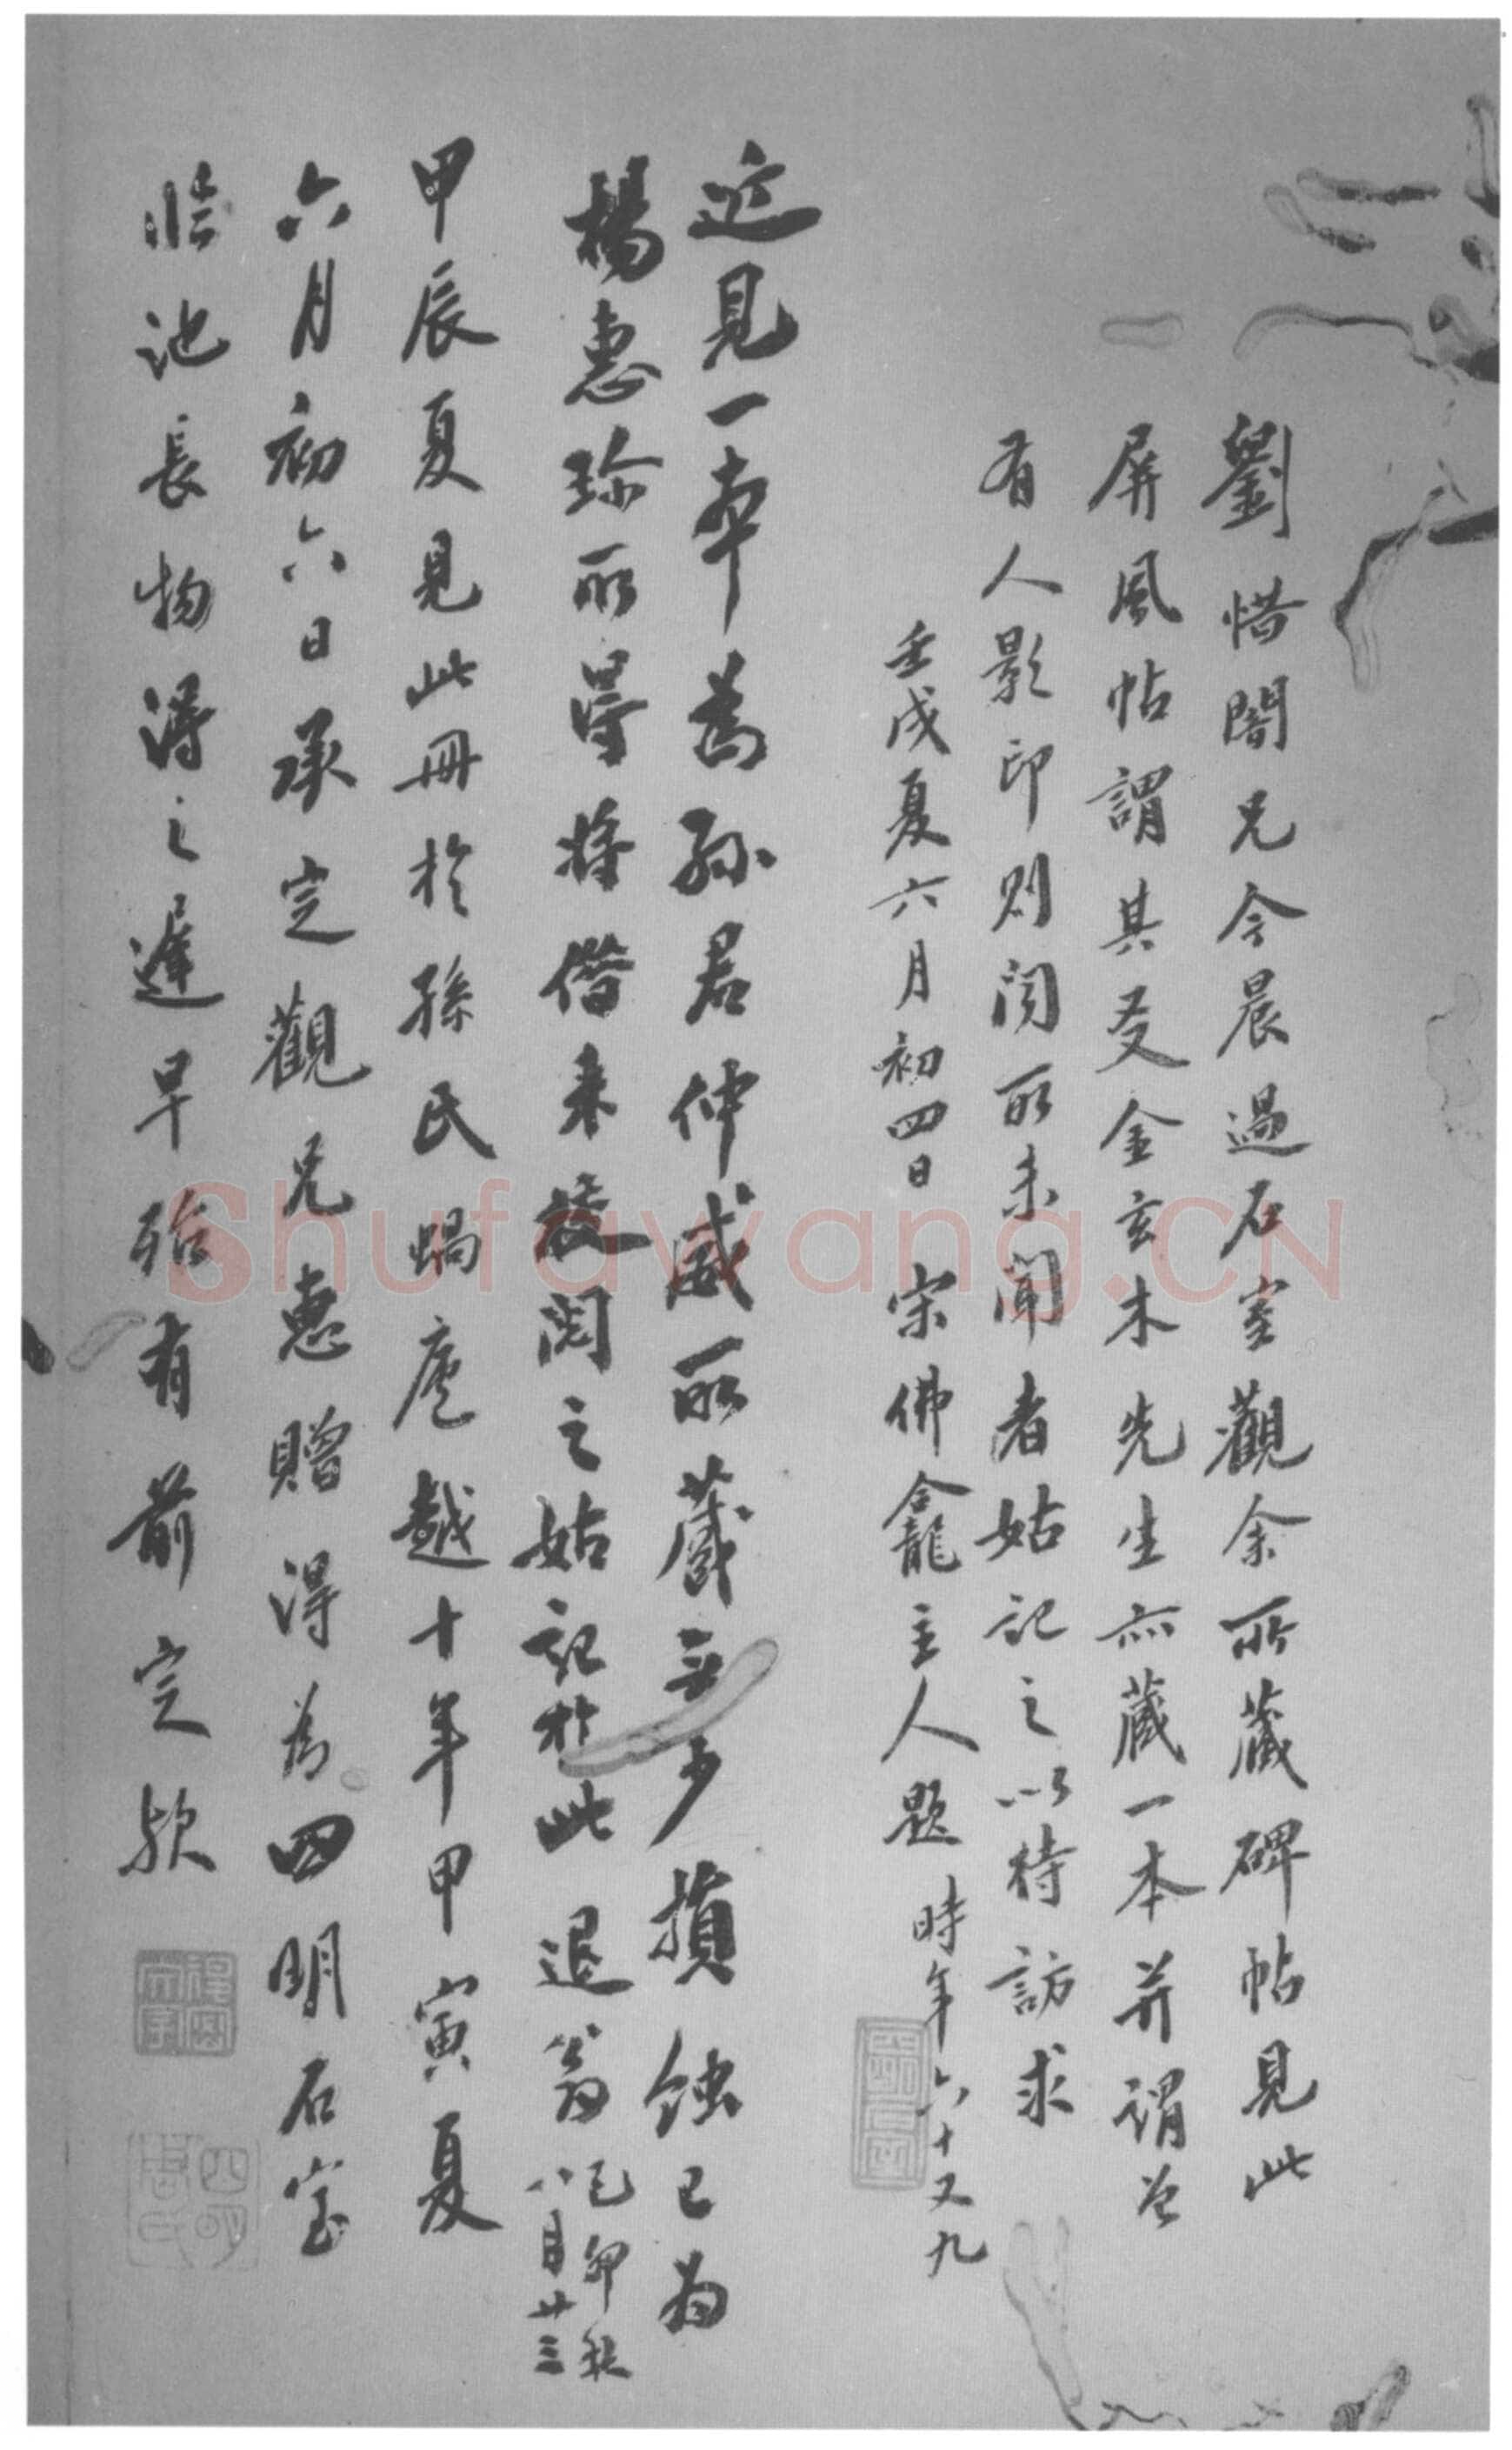 劉惜闇兄今晨過石室觀余所藏碑帖見此
屏風帖謂其友金玄木先生亦藏一本并謂曾
有人影印則閱所未聞者姑記之以待訪求
壬戌夏六月初四日 宋佛龕主人題 時年六十又九
近見一本為孫君仲威所藏無少損蝕已為
楊惠珍所得將借來校閱之姑記於此退翁 己卯秋
八月廿三
甲辰夏見此冊於孫氏蝸廬越十年甲寅夏
六月初六日承定觀兄惠贈得為四明石室
臨池長物得之遲早殆有前定歟
四明
Shufawang.CN